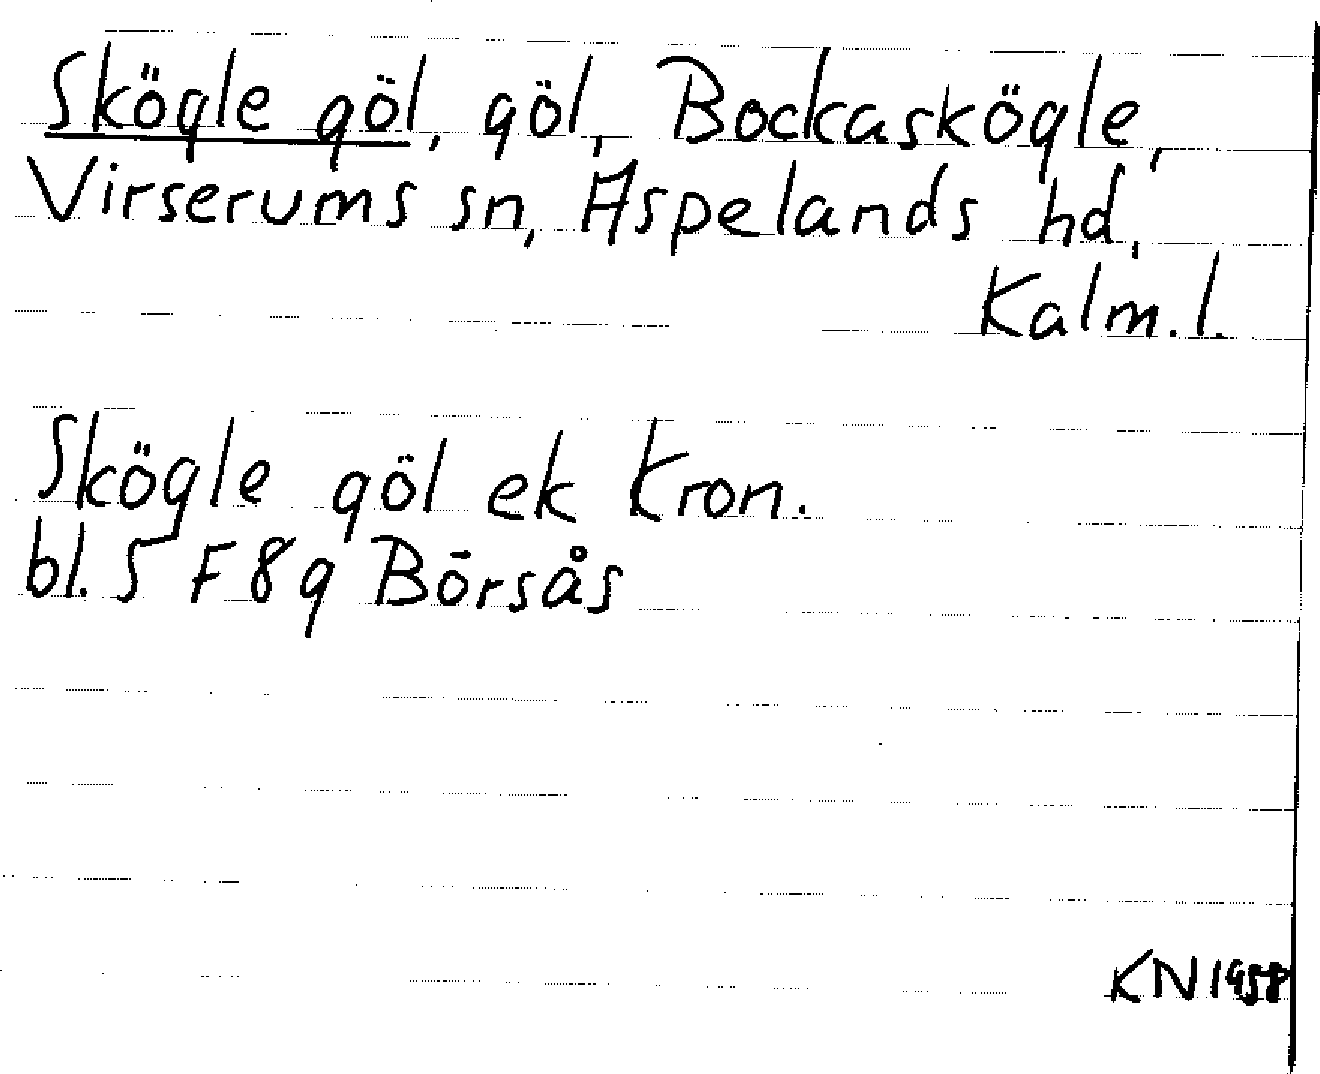 Skögle göl, göl, Bockaskögle,
Virserums sn, Aspelands hd,
Kalm. l.
Skögle göl ek Kron.
bl. 5 F 8 g Börsås
KN 1958